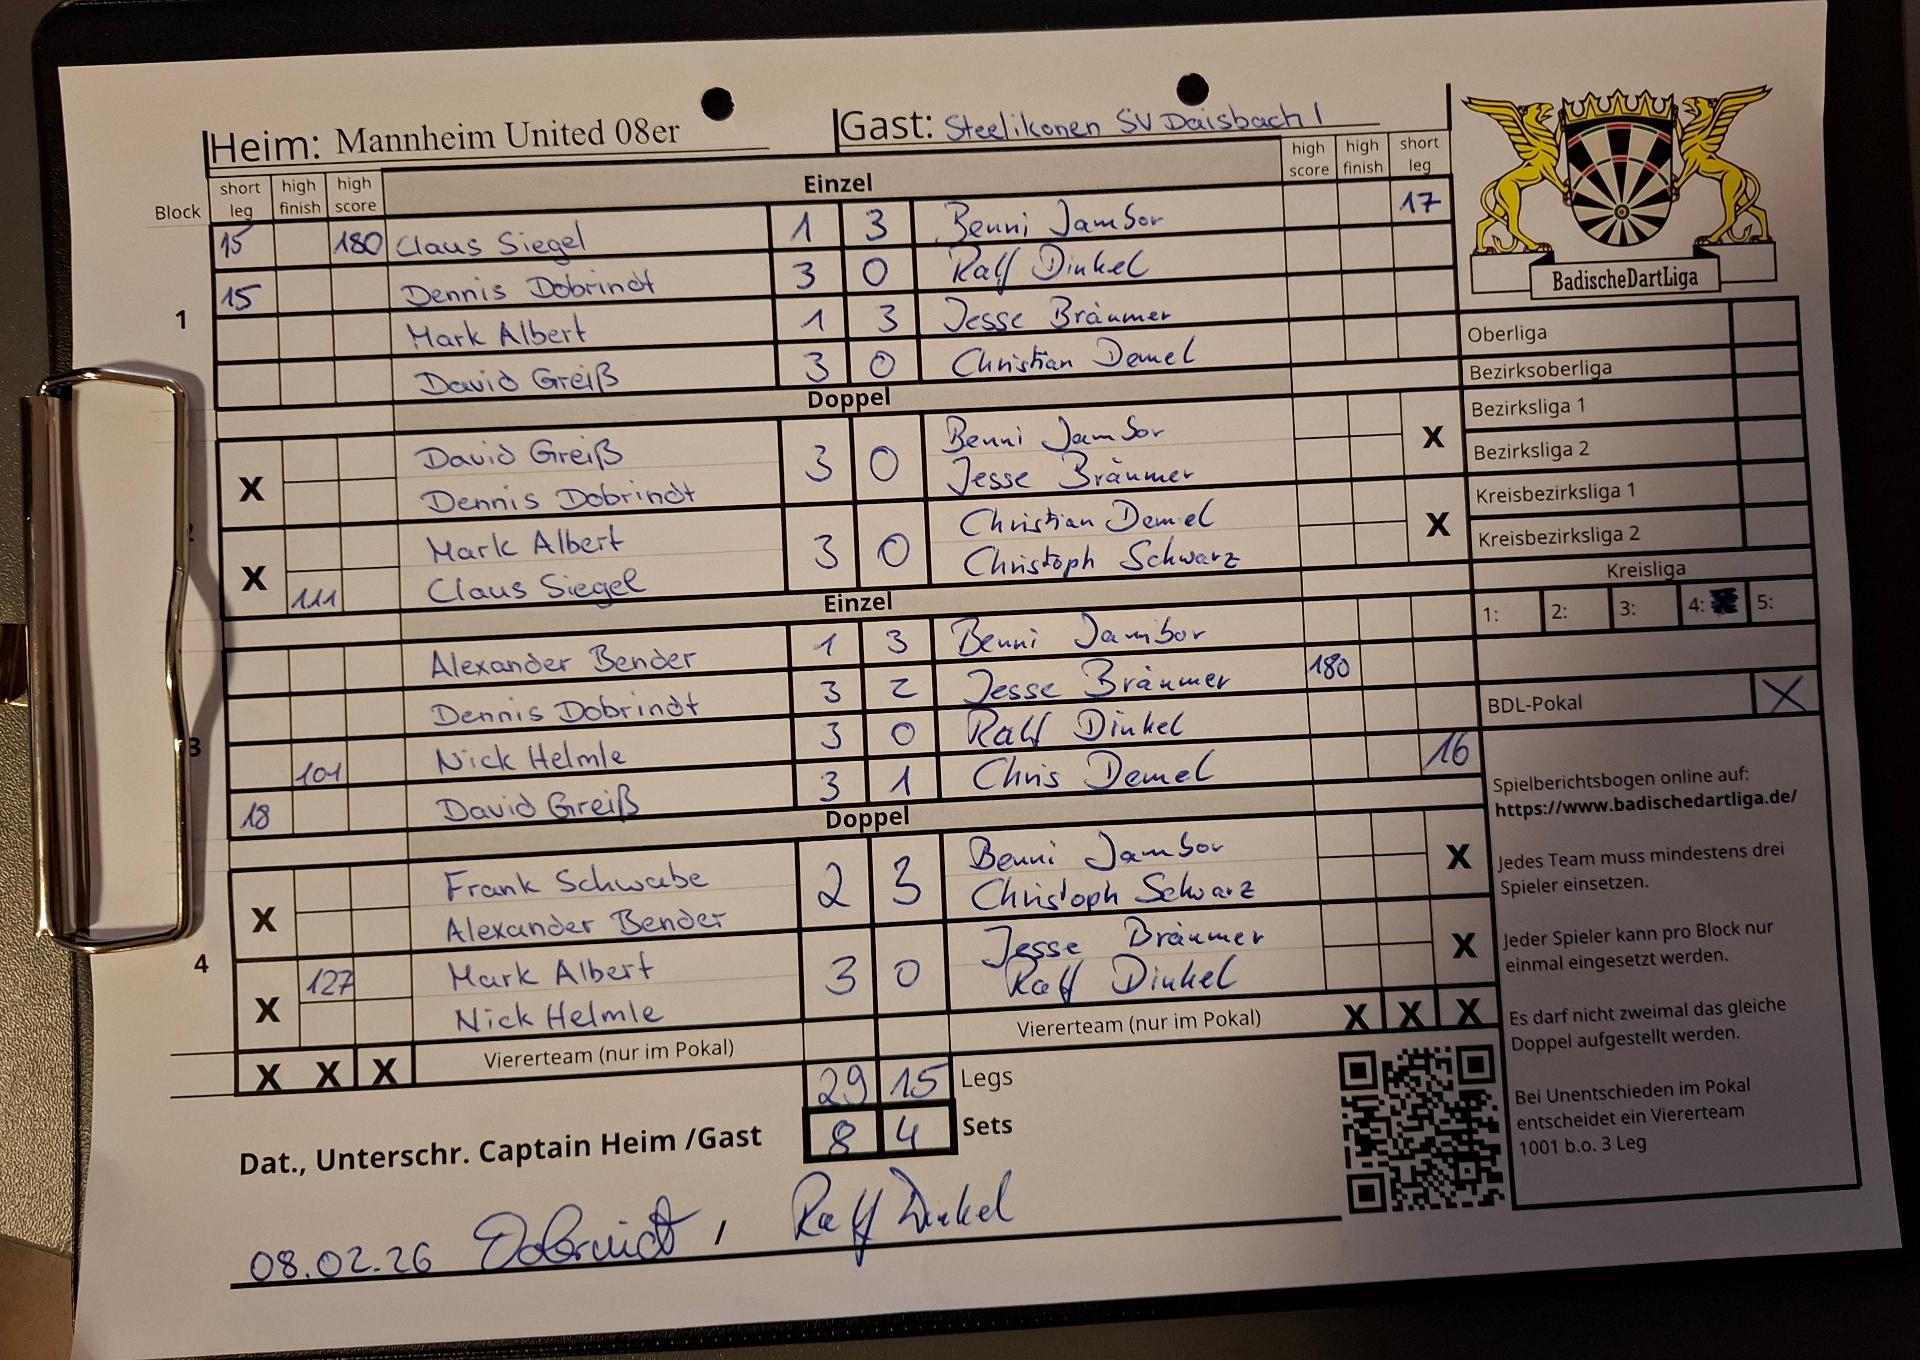 Heim: Mannheim United 08er Gast: Steelikonen SV Daisbach 1
Block short leg high finish high score Einzel high score high finish short leg
15 180 Claus Siegel 1 3 Benni Jambor 17
15 Dennis Dobrindt 3 0 Ralf Dinkel
1 Mark Albert 1 3 Jesse Bräumer
David Greiß 3 0 Christian Demel
Doppel
David Greiß 3 0 Benni Jambor
X Dennis Dobrindt Jesse Bräumer X
Mark Albert 3 0 Christian Demel
X 111 Claus Siegel Christoph Schwarz X
Einzel
Alexander Bender 1 3 Benni Jambor
Dennis Dobrindt 3 2 Jesse Bräumer 180
3 101 Nick Helmle 3 0 Ralf Dinkel
18 David Greiß 3 1 Chris Demel 16
Doppel
Frank Schwabe 2 3 Benni Jambor
X Alexander Bender Christoph Schwarz X
4 127 Mark Albert 3 0 Jesse Bräumer
X Nick Helmle Ralf Dinkel X
X X X Viererteam (nur im Pokal) Viererteam (nur im Pokal) X X X
29 15 Legs
8 4 Sets
Dat., Unterschr. Captain Heim /Gast
08.02.26 Dobrindt , Ralf Dinkel
BadischeDartLiga
Oberliga
Bezirksoberliga
Bezirksliga 1
Bezirksliga 2
Kreisbezirksliga 1
Kreisbezirksliga 2
Kreisliga
1: 2: 3: 4: 5:
BDL-Pokal X
Spielberichtsbogen online auf:
https://www.badischedartliga.de/
Jedes Team muss mindestens drei
Spieler einsetzen.
Jeder Spieler kann pro Block nur
einmal eingesetzt werden.
Es darf nicht zweimal das gleiche
Doppel aufgestellt werden.
Bei Unentschieden im Pokal
entscheidet ein Viererteam
1001 b.o. 3 Leg